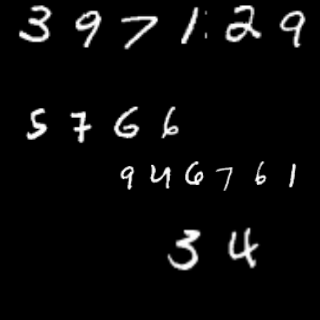 397129
5766
946761
34